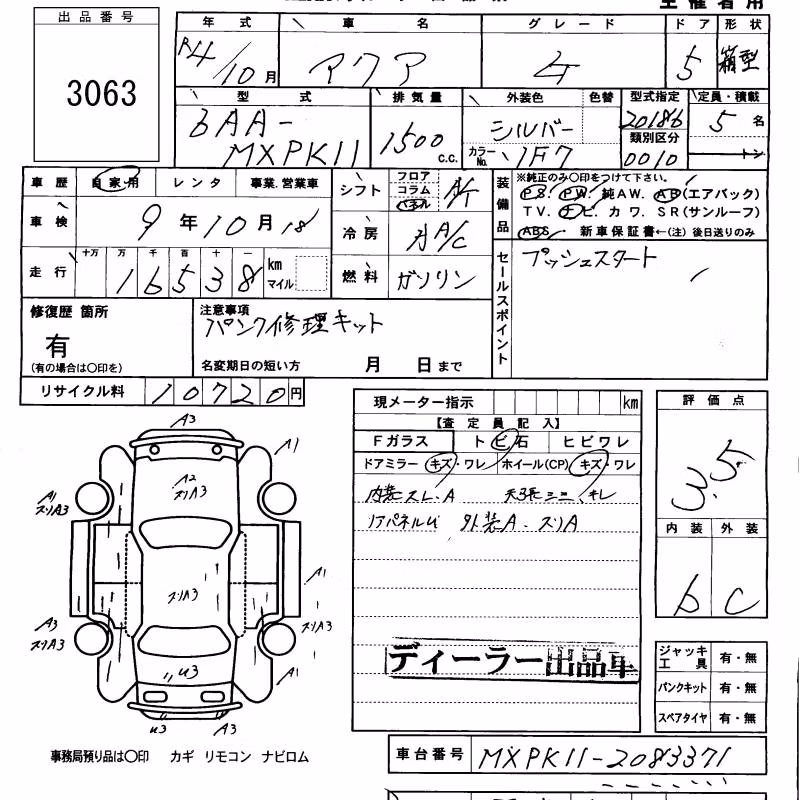 出品番号
3063
年式 車名 グレード ドア 形状
R4/10月 アクア 5 箱型
型式 排気量 外装色 色替 型式指定 定員・積載
6AA-MXPK11 1500 c.c. シルバー 20186 5名
類別区分
カラーNo. 1F7 0010 トン
車歴 自家用 レンタ 事業.営業車
車検 9年10月18
走行 十万 万 千 百 十 一
16538 km マイル
シフト フロア コラム パネル A/T
冷房 A/C
燃料 ガソリン
装備品 ※純正のみ〇印をつけて下さい。
P.S. P.W. 純AW. AB(エアバック)
T.V. ナビ. カワ. SR(サンルーフ)
ABS 新車保証書←(注)後日送りのみ
セールスポイント
プッシュスタート
修復歴 箇所
有
(有の場合は〇印を)
注意事項
パンク修理キット
名変期日の短い方 月 日まで
リサイクル料 10720円
現メーター指示 km
【査定員記入】
Fガラス トビ石 ヒビワレ
ドアミラー キズ・ワレ ホイール(CP) キズ・ワレ
内装スレ.A キレ
リアパネルU 外装A.スリA
ディーラー出品車
評価点
3.5
内装 外装
b C
ジャッキ工具 有・無
パンクキット 有・無
スペアタイヤ 有・無
A3
A1
A2
スリA3
A1
スリA3
スリA3
A1
A3
スリA3
A1
U3
U3 A3
事務局預り品は〇印 カギ リモコン ナビロム
車台番号 MXPK11-2083371